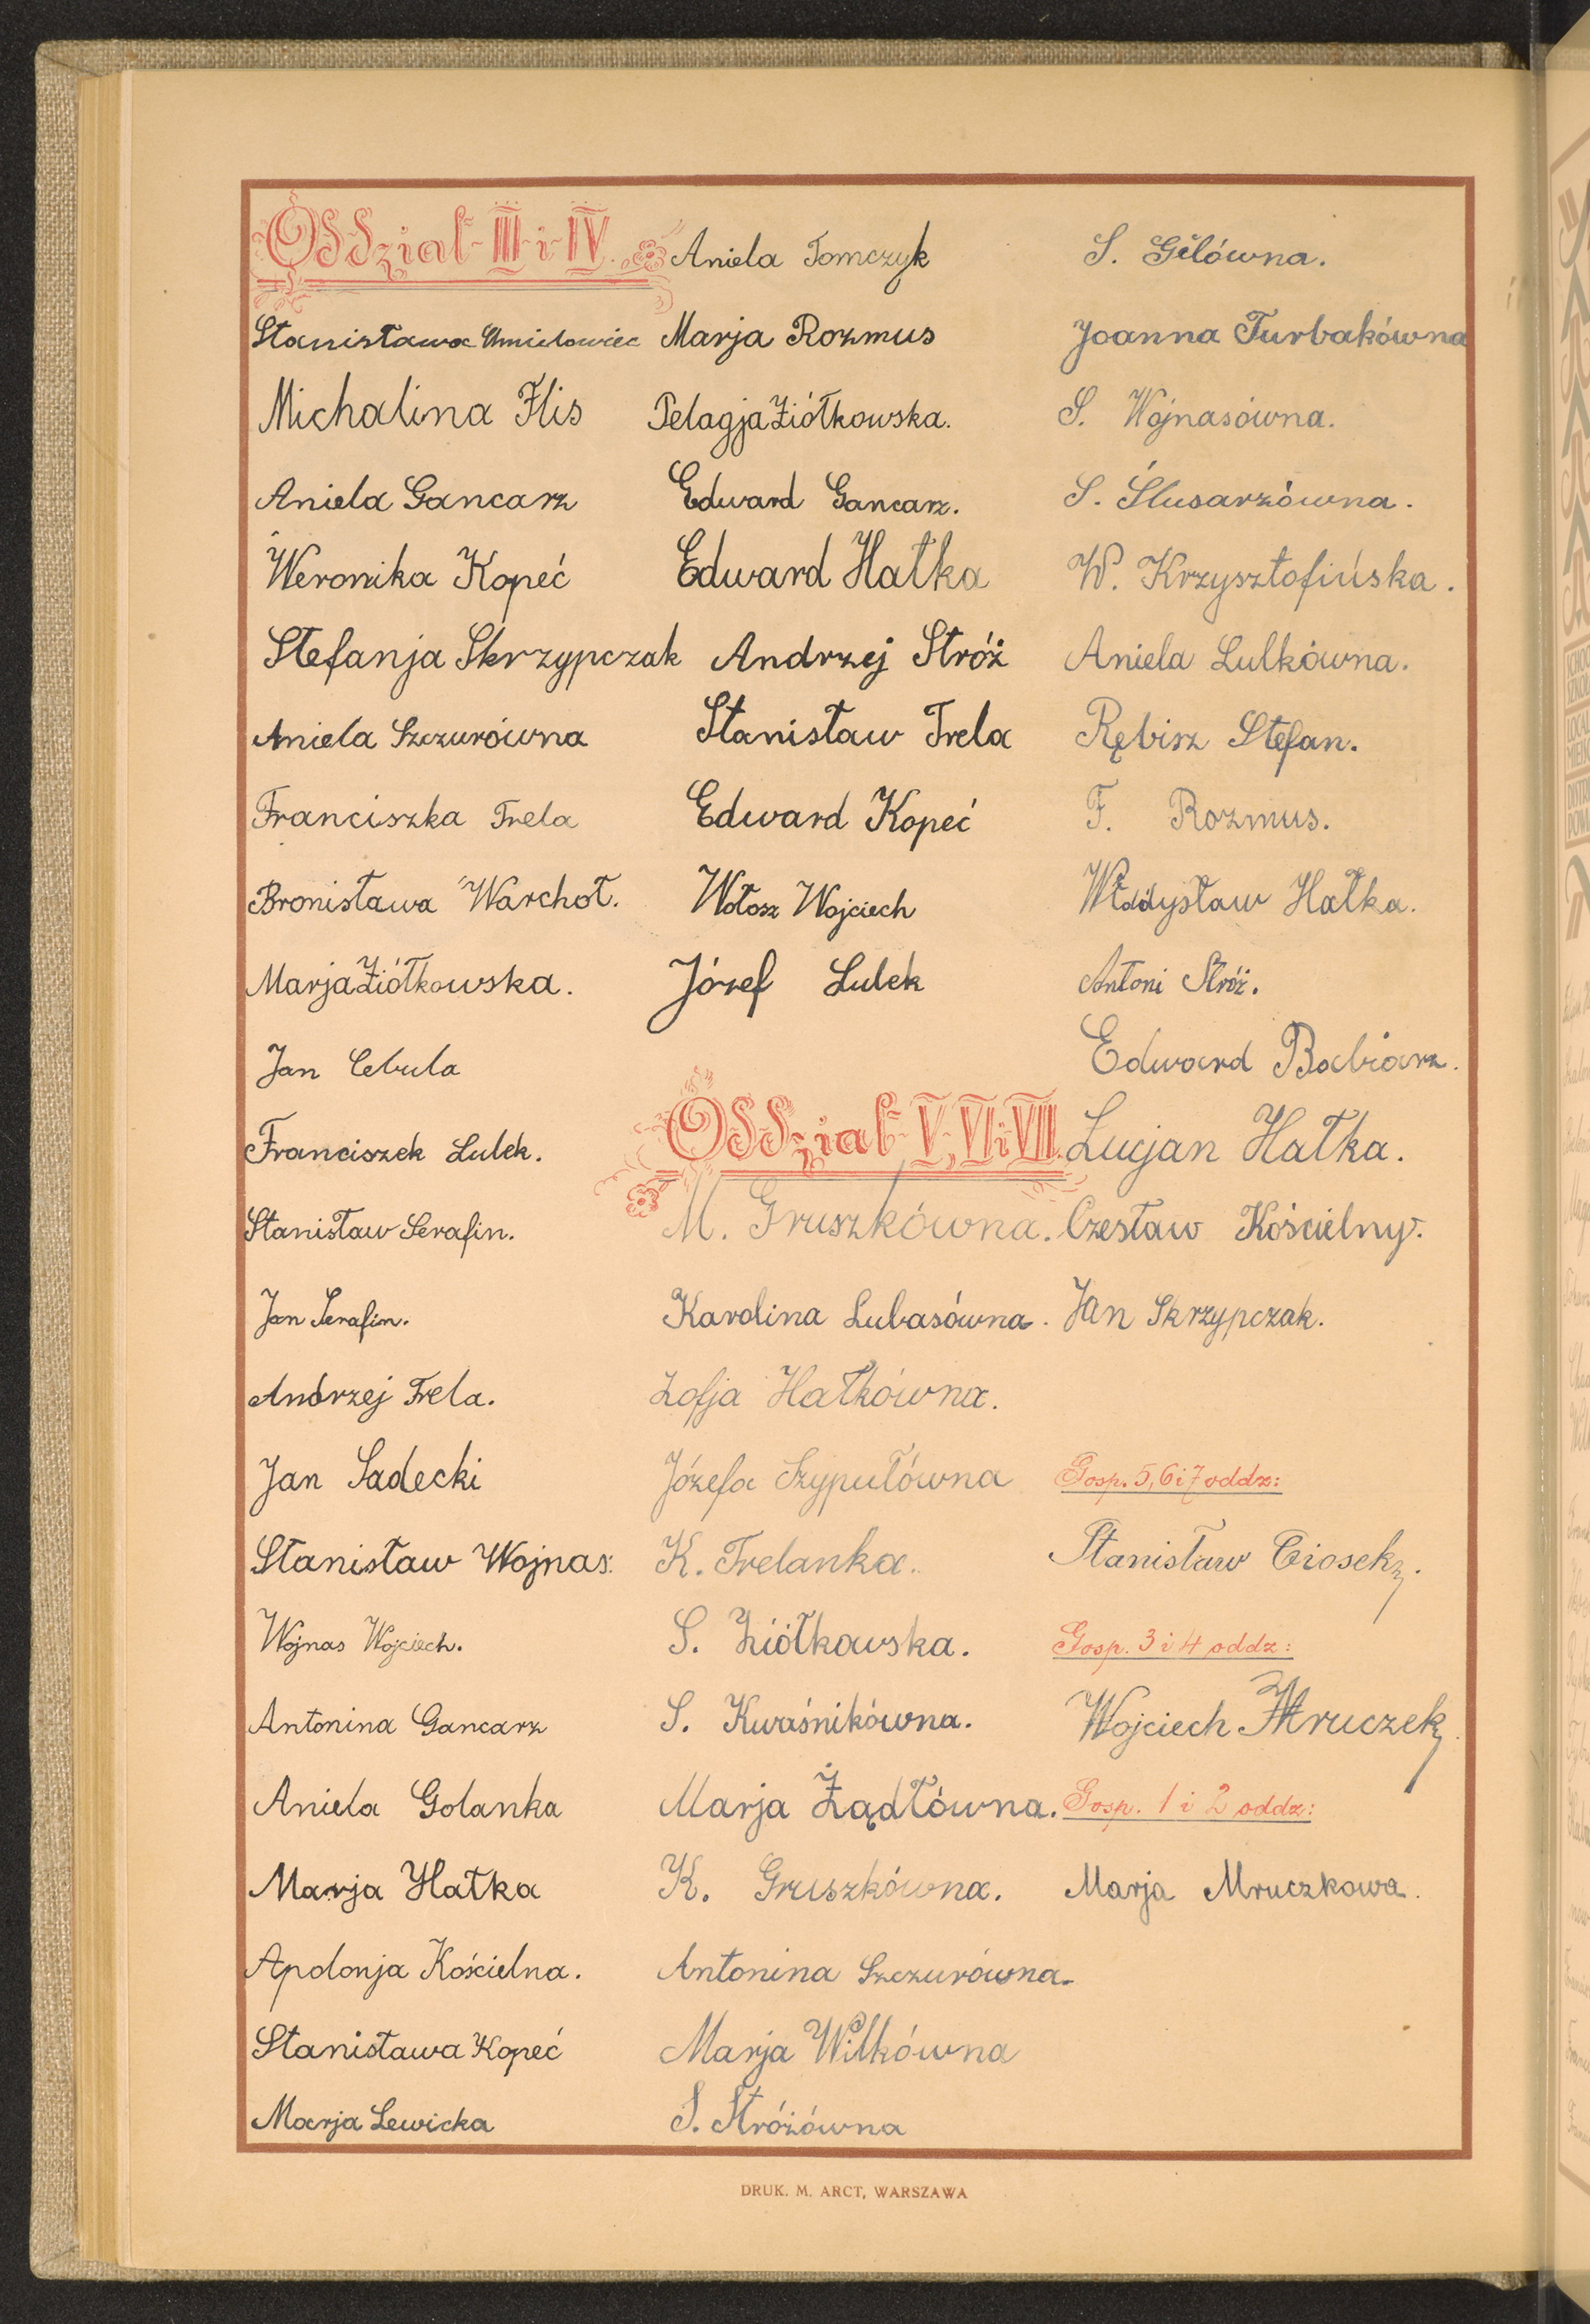 Oddział III i IV.
Stanisława Chmielowiec
Michalina Flis
Aniela Gancarz
Weronika Kopeć
Stefanja Skrzypczak
Aniela Szczurówna
Franciszka Trela
Bronisława Warchoł.
Marja Ziółkowska.
Jan Cebula
Franciszek Lulek.
Stanisław Serafin.
Jan Serafin.
Andrzej Trela.
Jan Sadecki
Stanisław Wojnas.
Wojnas Wojciech.
Antonina Gancarz
Aniela Golanka
Marja Hałka
Apolonja Kościelna.
Stanisława Kopeć
Marja Lewicka
Aniela Tomczyk
Marja Rozmus
Pelagja Ziółkowska.
Edward Gancarz.
Edward Hałka
Andrzej Stróż
Stanisław Trela
Edward Kopeć
Wołosz Wojciech
Józef Lulek
Oddział V, VI i VII.
M. Gruszkówna.
Karolina Lubasówna.
Zofja Hałkówna.
Józefa Szypułówna
K. Trelanka.
S. Ziółkowska.
S. Kwaśnikówna.
Marja Żądłówna.
K. Gruszkówna.
Antonina Szczurówna.
Marja Wilkówna
S. Stróżówna
S. Gelówna.
Joanna Turbakówna
S. Wojnasówna.
S. Ślusarzówna.
W. Krzysztofińska.
Aniela Lulkówna.
Rębisz Stefan.
F. Rozmus.
Władysław Hałka.
Antoni Stróż.
Edward Babiarz.
Lucjan Hałka.
Czesław Kościelny.
Jan Skrzypczak.
Gosp. 5, 6 i 7 oddz:
Stanisław Ciosek.
Gosp. 3 i 4 oddz:
Wojciech Mruczek.
Gosp. 1 i 2 oddz:
Marja Mruczkowa.
DRUK. M. ARCT, WARSZAWA